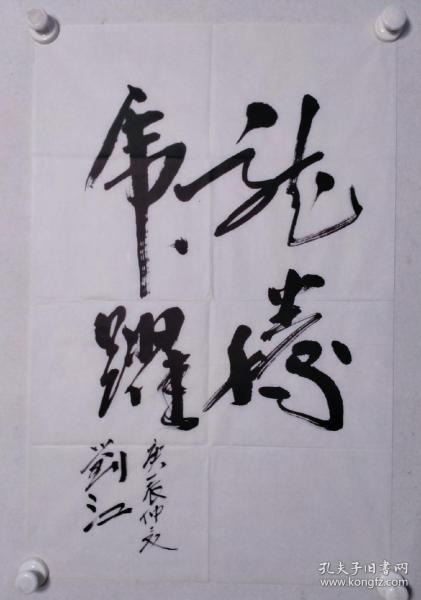 龙腾
虎跃
庚辰仲夏
劉江
孔夫子旧书网
www.kongfz.com